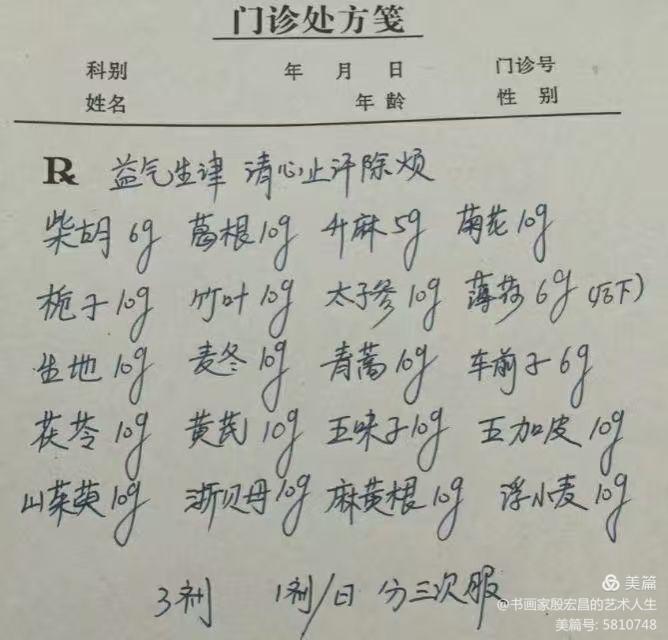 门诊处方笺
科别 年 月 日 门诊号
姓名 年龄 性别
Rx 益气生津 清心止汗除烦
柴胡6g 葛根10g 升麻5g 菊花10g
栀子10g 竹叶10g 太子参10g 薄荷6g(后下)
生地10g 麦冬10g 青蒿10g 车前子6g
茯苓10g 黄芪10g 五味子10g 五加皮10g
山茱萸10g 浙贝母10g 麻黄根10g 浮小麦10g
3剂 1剂/日 分三次服
美篇
@书画家殷宏昌的艺术人生
美篇号: 5810748